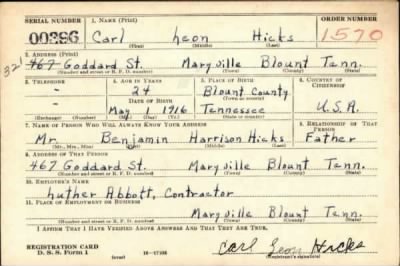 SERIAL NUMBER 1. NAME (Print) ORDER NUMBER
00396 Carl Leon Hicks 1570
(First) (Middle) (Last)
2. ADDRESS (Print)
321 467 Goddard St. Maryville Blount Tenn.
(Number and street or R. F. D. number) (Town) (County) (State)
3. TELEPHONE 4. AGE IN YEARS 5. PLACE OF BIRTH 6. COUNTRY OF CITIZENSHIP
- 24 Blount County
DATE OF BIRTH (Town or county)
- May 1 1916 Tennessee U.S.A.
(Exchange) (Number) (Mo.) (Day) (Yr.) (State or country)
7. NAME OF PERSON WHO WILL ALWAYS KNOW YOUR ADDRESS 8. RELATIONSHIP OF THAT PERSON
Mr. Benjamin Harrison Hicks Father
(Mr., Mrs., Miss) (First) (Middle) (Last)
9. ADDRESS OF THAT PERSON
467 Goddard St. Maryville Blount Tenn.
(Number and street or R. F. D. number) (Town) (County) (State)
10. EMPLOYER'S NAME
Luther Abbott, Contractor
11. PLACE OF EMPLOYMENT OR BUSINESS
Maryville Blount Tenn.
(Number and street or R. F. D. number) (Town) (County) (State)
I AFFIRM THAT I HAVE VERIFIED ABOVE ANSWERS AND THAT THEY ARE TRUE.
REGISTRATION CARD Carl Leon Hicks
D. S. S. Form 1 (over) (Registrant's signature)